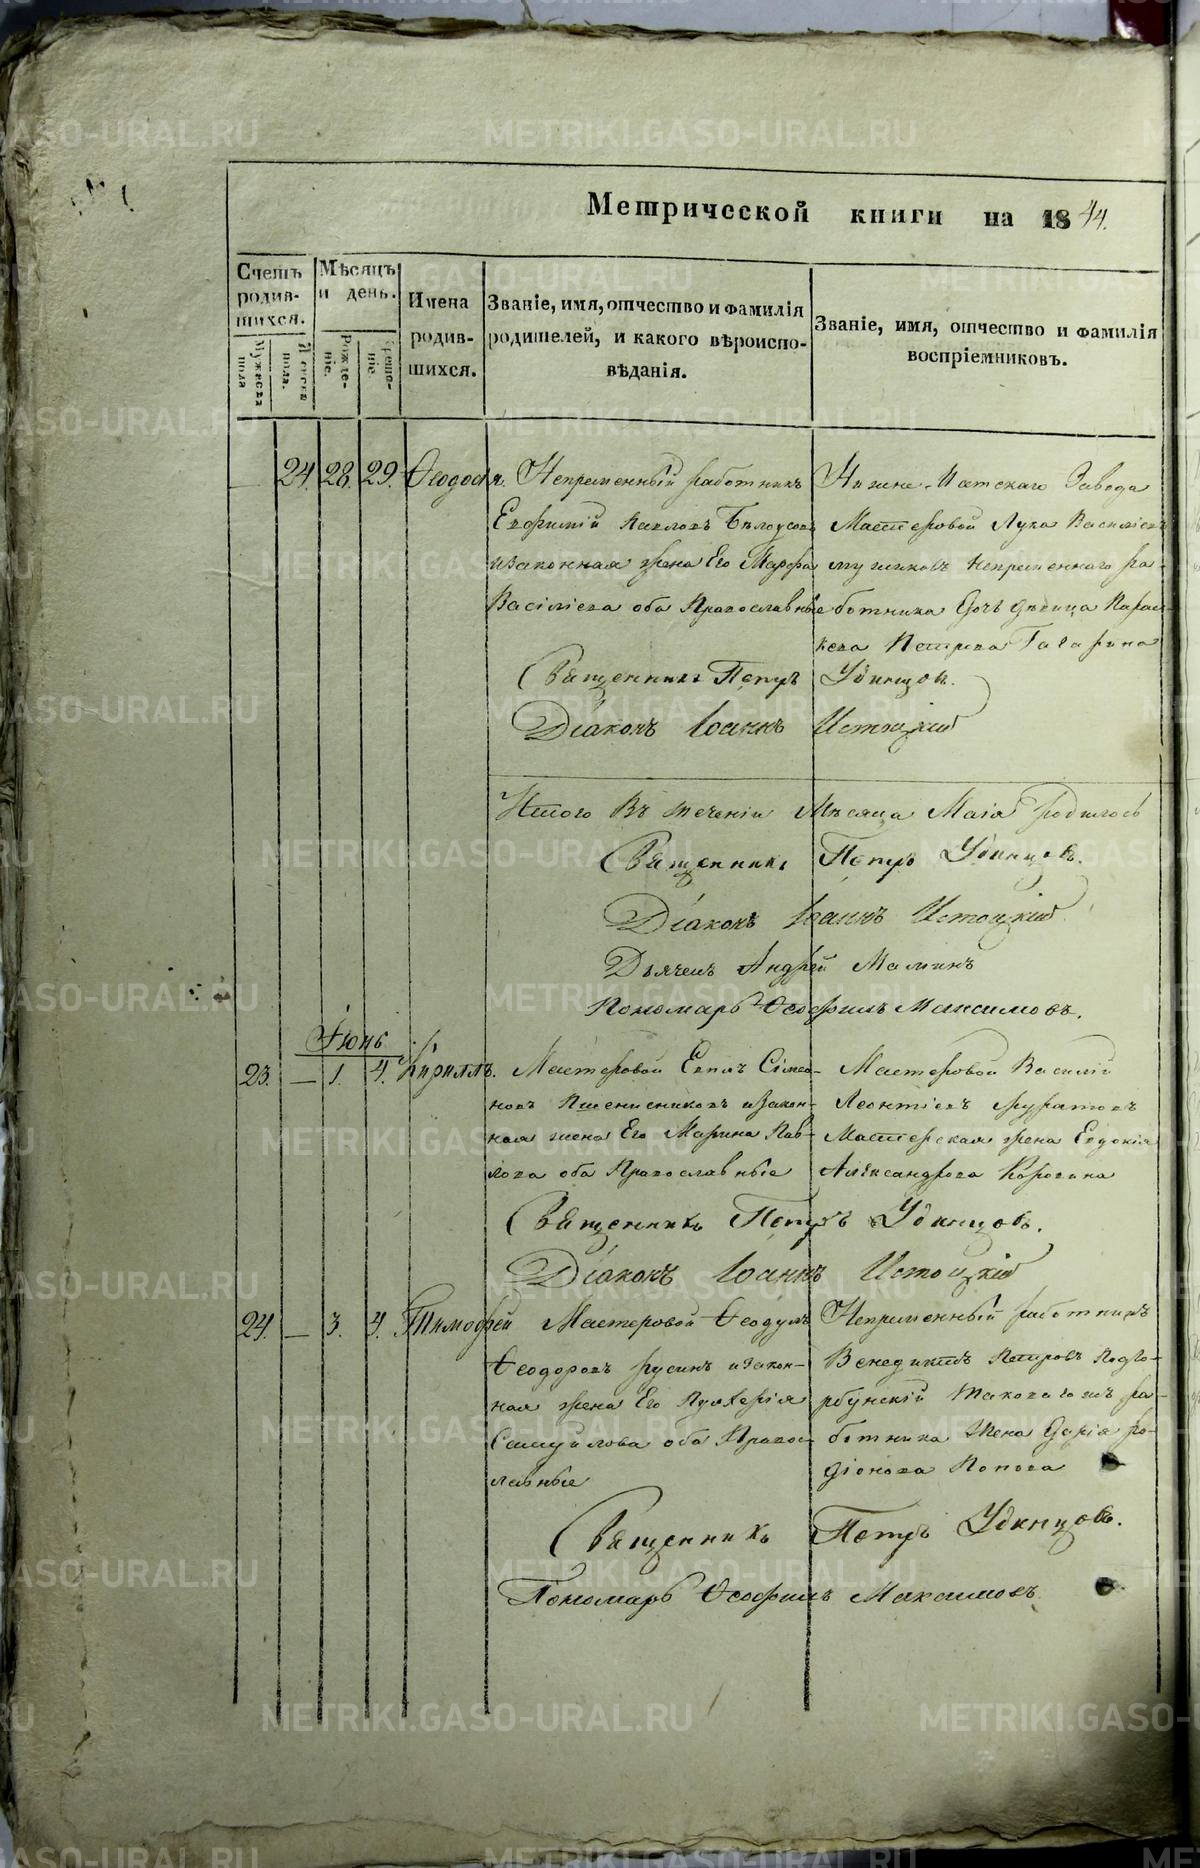 Метрической книги на 1844.
Счетъ родив-шихся.
Мѣсяцъ и день.
Имена родив-шихся.
Званіе, имя, отчество и фамилія родителей, и какого вѣроиспо-вѣданія.
Званіе, имя, отчество и фамилія воспріемниковъ.
Мужеска пола
Женска пола.
Рожде-нія.
Креще-нія
24. 28. 29. Ѳеодосія. Непременный работникъ
Евфимій Павловъ Белоусовъ
и законная жена Его Марфа
Васіліева оба Православные
Нижне-Исетскаго Завода
Мастеровой Лука Василіевъ
Непременнаго ра-
ботника дочь девица Парас-
кева Петрова Гагарина
Священникъ Петръ Удинцов.
Діаконъ Іоаннъ Истоцкій
Итого Въ теченіи Мѣсяца Маія родилось
Священникъ Петръ Удинцовъ.
Діаконъ Іоаннъ Истоцкій
Дьячекъ Андрей Маминъ
Пономарь Ѳеофилъ Максимовъ.
Іюнь
23. — 1. 4. Кириллъ. Мастеровой Сімео-
новъ Пшенисниковъ и закон-
ная жена Его Марина Пав-
лова оба Православные
Мастеровой Василій
Леонтіевъ
Мастерская жена Евдокія
Александрова
Священникъ Петръ Удинцовъ.
Діаконъ Іоаннъ Истоцкій
24. — 3. 4. Тимофей Мастеровой Ѳеодулъ
Ѳеодоровъ Русинъ и закон-
ная жена Его Пулхерія
Самуйлова оба Правос-
лавные
Непременный работникъ
Венедиктъ Петровъ Подго-
рбунскій Таковагожъ ра-
ботника Жена Дарія Ро-
діонова Попова
Священникъ Петръ Удинцовъ.
Пономарь Ѳеофилъ Максимовъ
METRIKI.GASO-URAL.RU